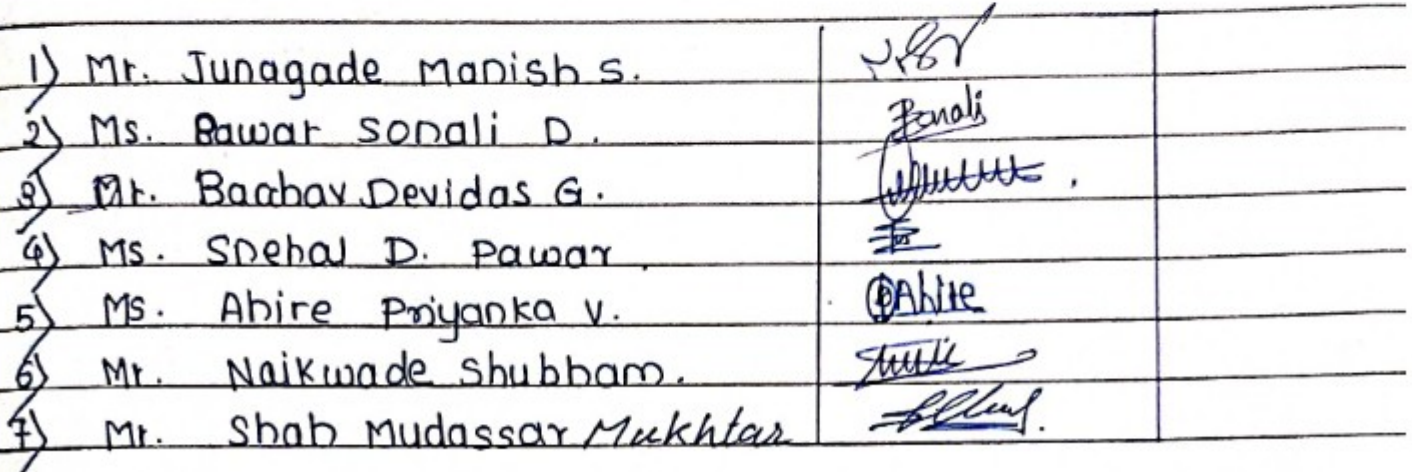 1) Mr. Junagade Manish S.
2) Ms. Pawar Sonali D. Sonali
3) Mr. Bachhav Devidas G.
4) Ms. Snehal D. Pawar
5) Ms. Ahire Priyanka V. PAhire
6) Mr. Naikwade Shubham.
7) Mr. Shah Mudassar Mukhtar